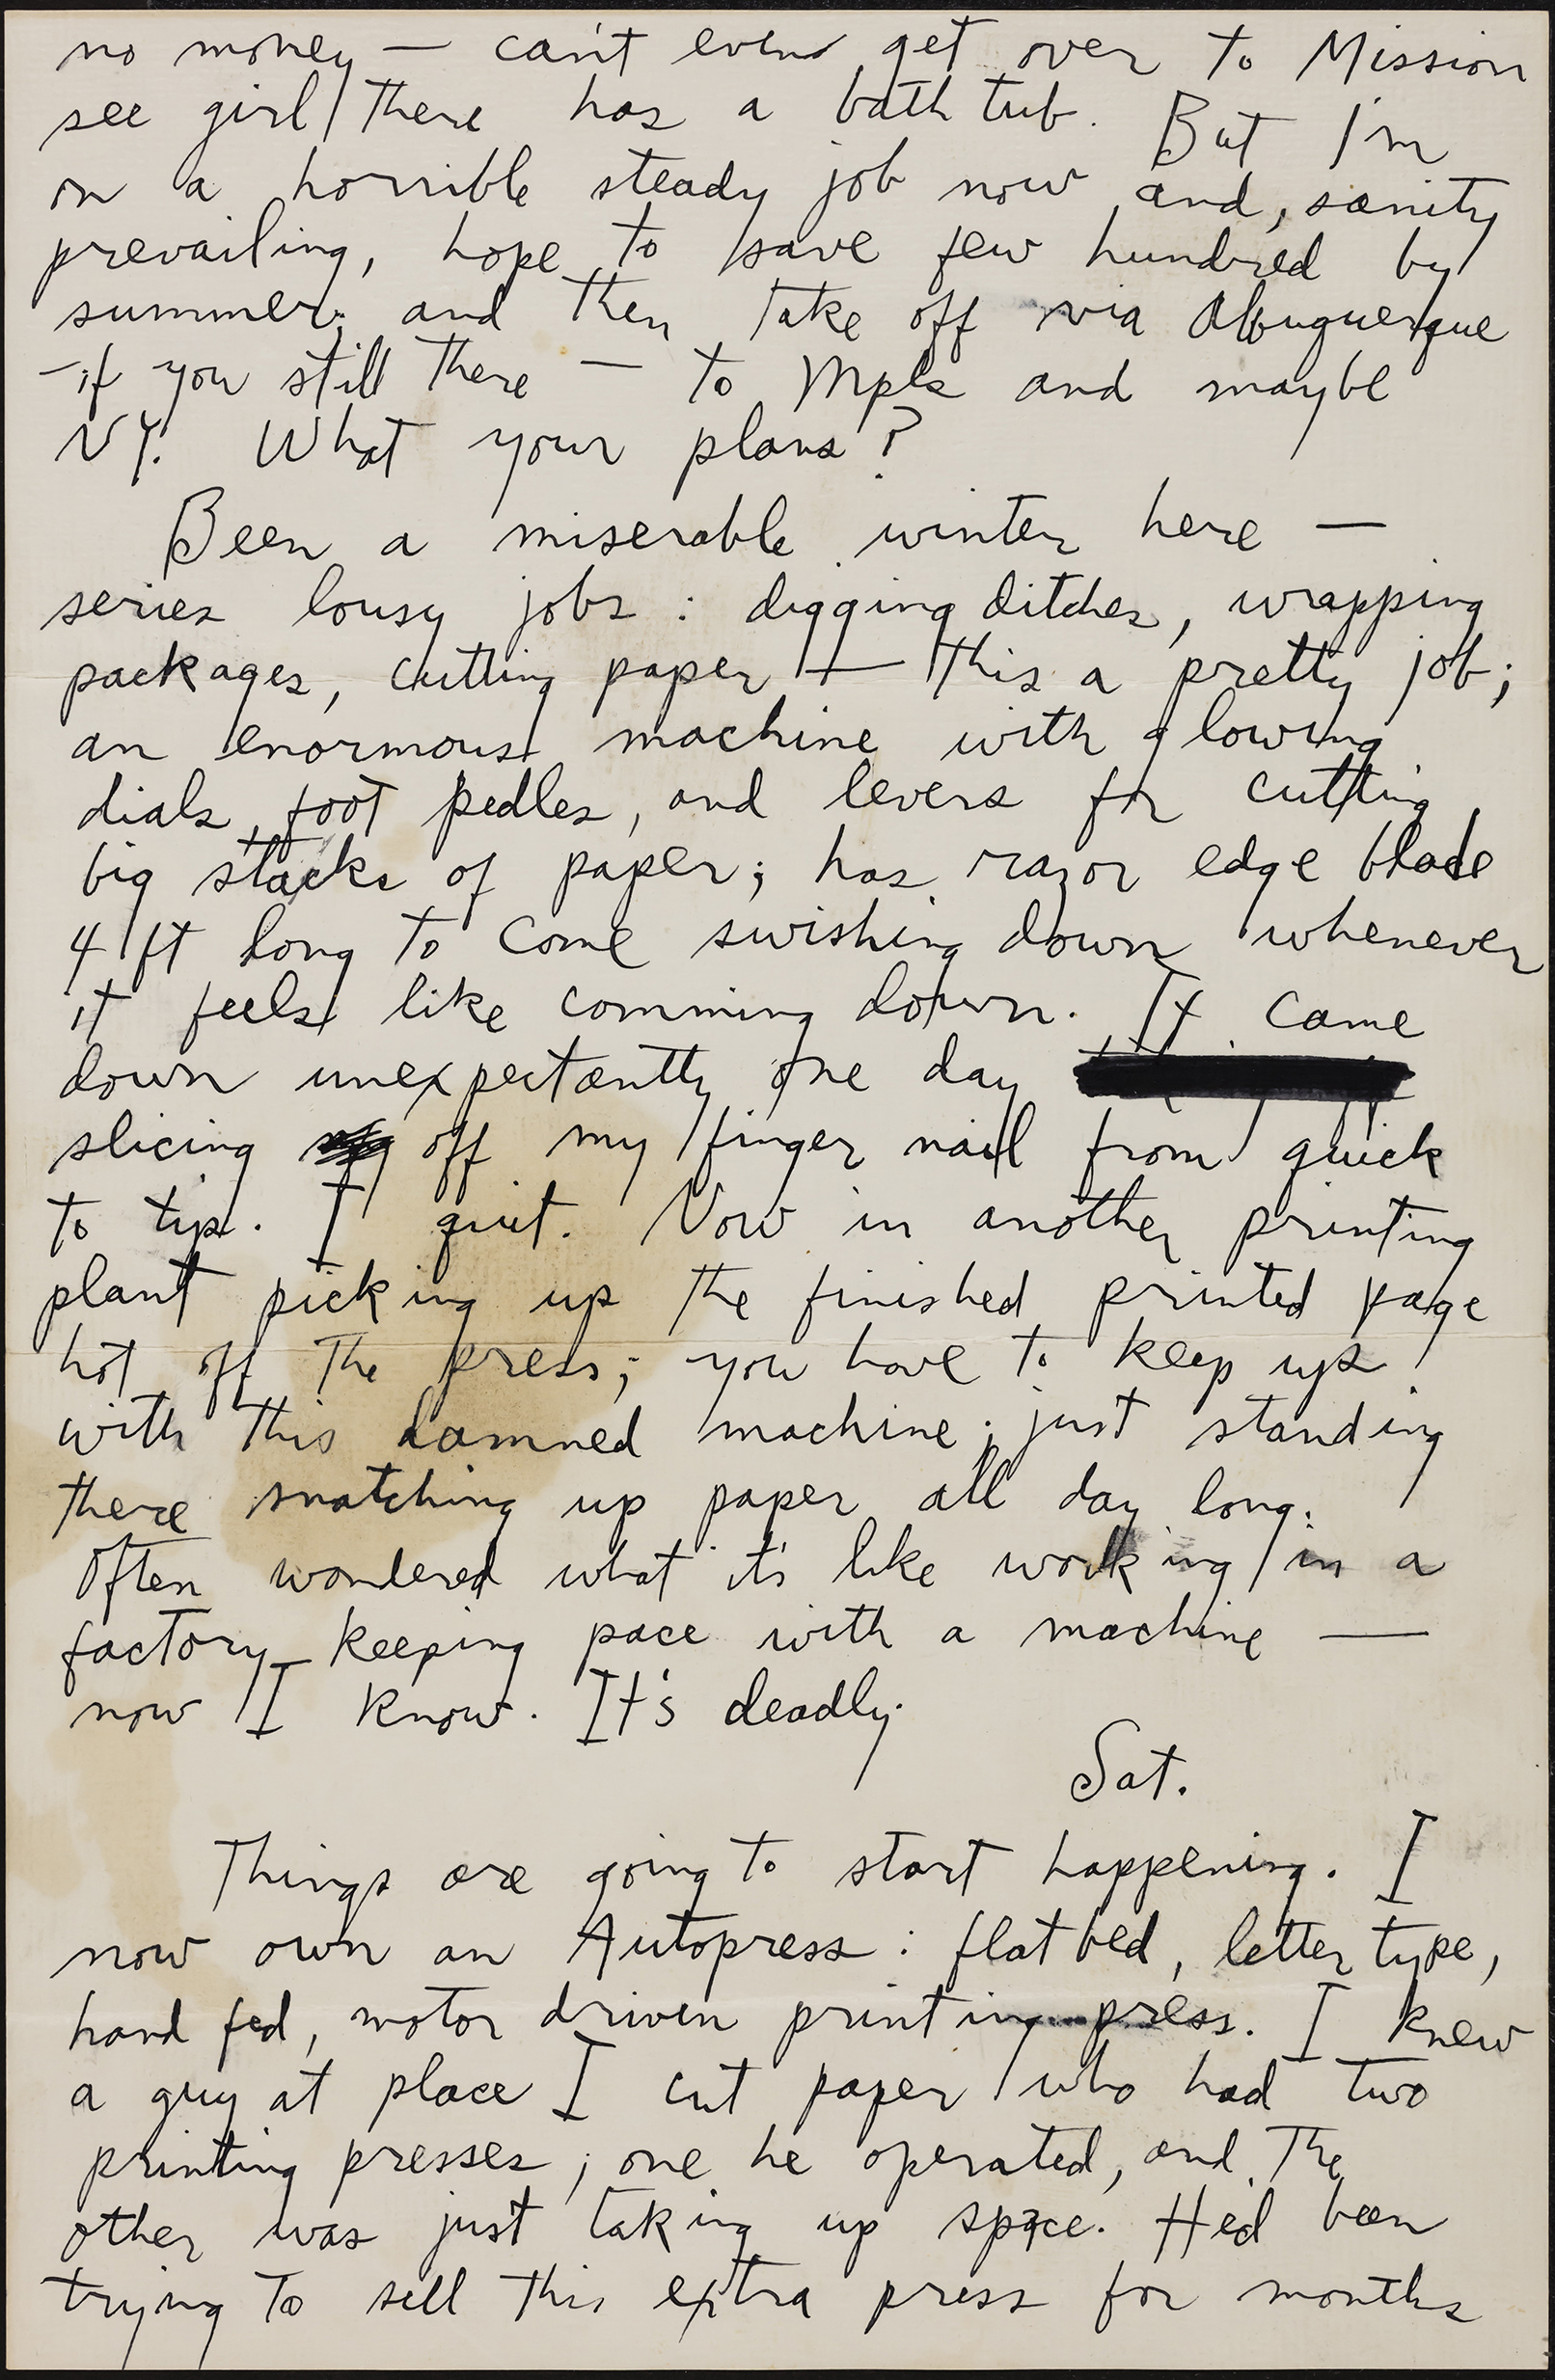 no money — can't even get over to Mission
see girl there has a bath tub. But I'm
on a horrible steady job now and, sanity
prevailing, hope to save few hundred by
summer; and then take off via Albuquerque
- if you still there — to Mpls and maybe
NY. What your plans?
Been a miserable winter here —
series lousy jobs: digging ditches, wrapping
packages, cutting paper — this a pretty job;
an enormous machine with glowing
dials, foot pedles, and levers for cutting
big stacks of paper; has razor edge blade
4 ft long to come swishing down whenever
it feels like comming down. It came
down unexpectantly one day
slicing off my finger nail from quick
to tip. I quit. Now in another printing
plant picking up the finished printed page
hot off the press; you have to keep up
with this damned machine; just standing
there snatching up paper all day long.
Often wondered what it's like working in a
factory keeping pace with a machine —
now I know. It's deadly.
Sat.
Things are going to start happening. I
now own an Autopress: flat bed, letter type,
hand fed, motor driven printing press. I knew
a guy at place I cut paper who had two
printing presses; one he operated, and the
other was just taking up space. He'd been
trying to sell this extra press for months